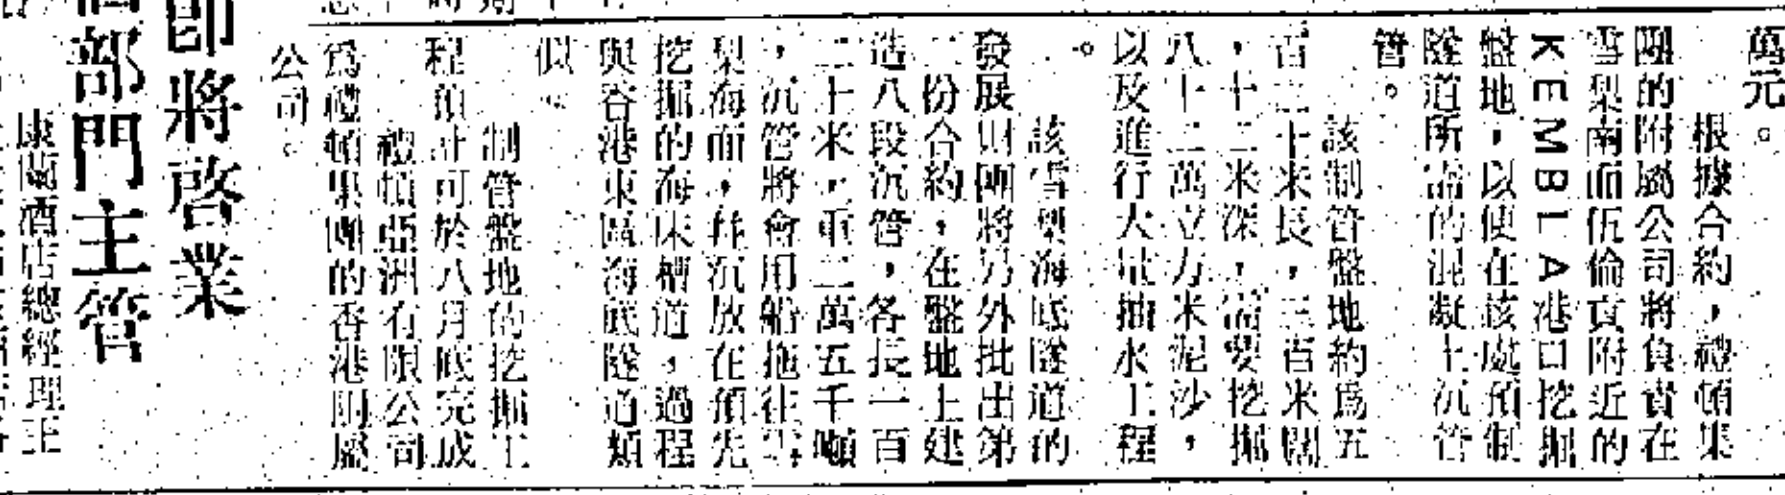 萬元。
根據合約，禮頓集
團的附屬公司將負責在
雪梨南面伍倫貢附近的
KEMBLA港口挖掘
盤地，以便在該處預制
隧道所需的混凝土沉管
管。
該制管盤地約爲五
百二十米長，三百米闊
，十二米深，需要挖掘
八十二萬立方米泥沙，
以及進行大量抽水工程
。
該雪梨海底隧道的
發展財團將另外批出第
二份合約，在盤地上建
造八段沉管，各長一百
二十米，重二萬五千噸
，沉管將會用船拖往雪
梨海面，并沉放在預先
挖掘的海床槽道，過程
與香港東區海底隧道類
似。
制管盤地的挖掘工
程預計可於八月底完成
禮頓亞洲有限公司
爲禮頓集團的香港附屬
公司。
即將啓業
部門主管
康蘭酒店總經理王